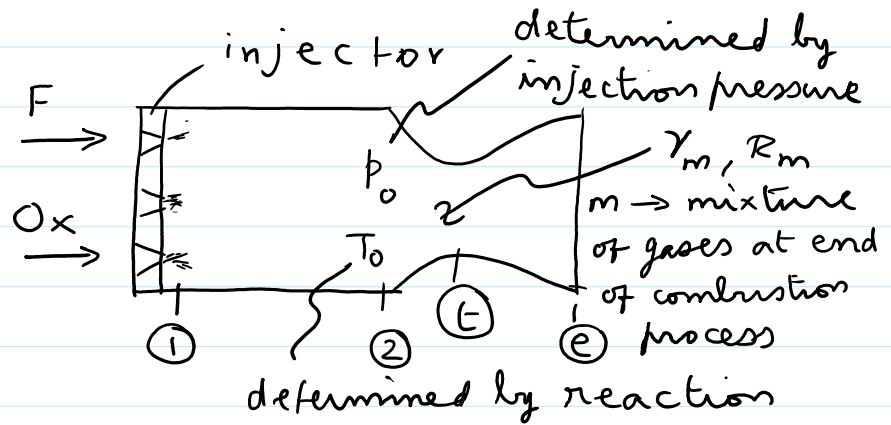 injector
determined by
injection pressure
F
Ox
p₀
T₀
γₘ, Rₘ
m → mixture
of gases at end
of combustion
process
1
2
t
e
determined by reaction